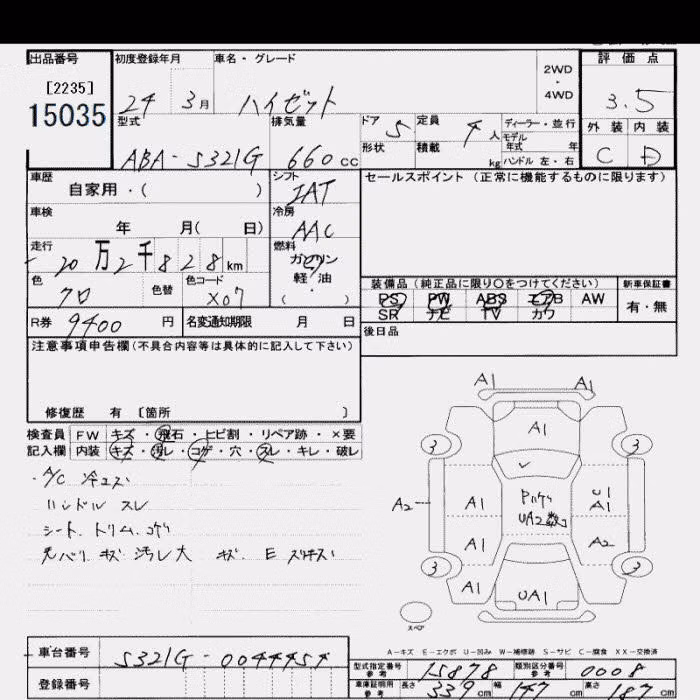 出品番号
[2235]
15035
初度登録年月
24 3月
車名・グレード
ハイゼット
2WD
・
4WD
評価点
3.5
外装 内装
C D
型式
ABA-S321G
排気量
660cc
ドア 5
形状
定員 4人
積載 kg
ディーラー・並行
モデル年式 年
ハンドル 左・右
車歴
自家用・( )
車検
年 月( 日)
走行
20万2千828km
色
クロ
色替
色コード
X07
シフト
IAT
冷房
AAC
燃料
ガソリン
軽油
( )
セールスポイント(正常に機能するものに限ります)
装備品(純正品に限り○をつけてください)
PS PW ABS エアB AW
SR ナビ TV カワ
新車保証書
有・無
R券 9400円
名変通知期限 月 日
後日品
注意事項申告欄(不具合内容等は具体的に記入して下さい)
修復歴 有 〔箇所 〕
検査員
記入欄
FW キズ・飛石・ヒビ割・リペア跡・×要
内装 キズ・汚レ・コゲ・穴・スレ・キレ・破レ
・A/C 冷エズ
ハンドル スレ
シート、トリム、コゲ
キズ 汚レ大 キズ、E
A1 A1
A1
3 3
A2 A1 U1
A1
UA2数コ
A1 A2
3 3
A1 UA1
スペア
A-キズ E-エクボ U-凹み W-補修跡 S-サビ C-腐食 XX-交換済
車台番号
S321G-0044454
登録番号
型式指定番号
参考
15878
類別区分番号
参考
0008
車庫証明用
参考
長さ 339cm 幅 147cm 高さ 187cm